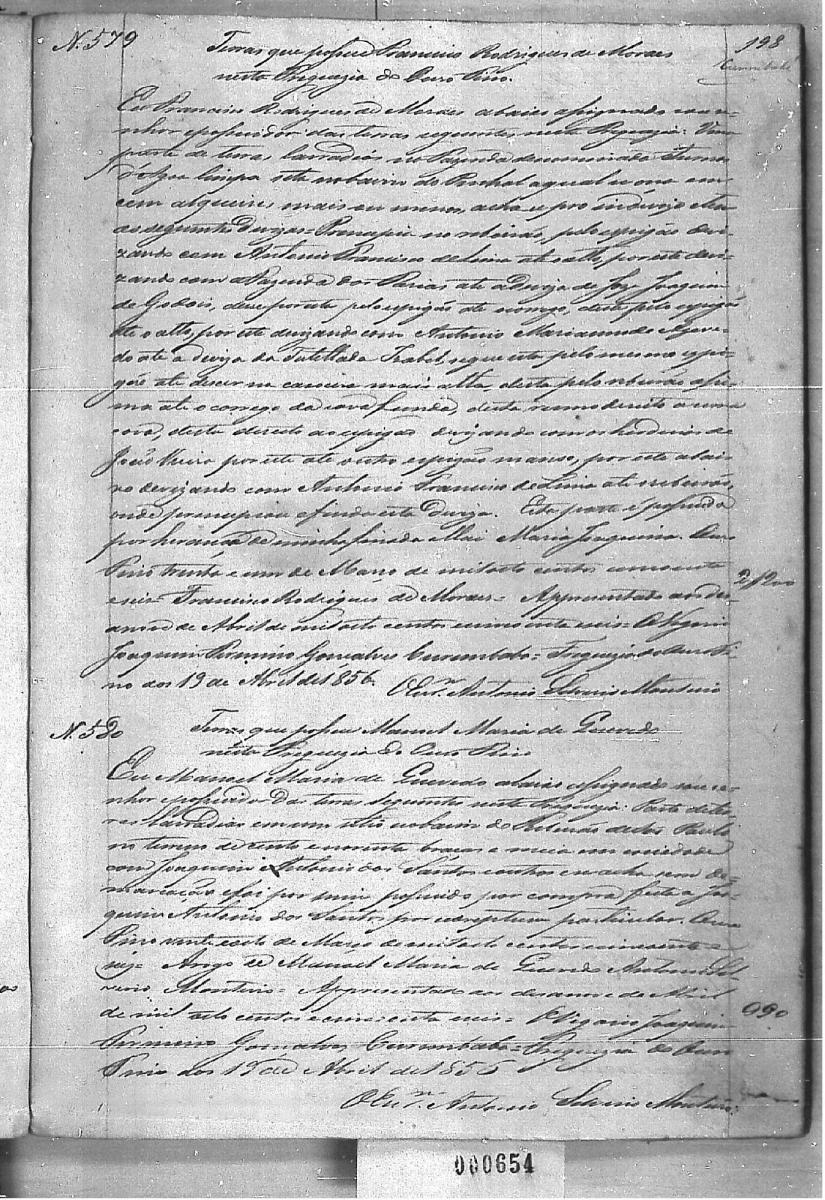 N. 579
198
Terras que possue Francisco Rodrigues de Moraes
nesta Freguezia do Ouro Fino.
Eu Francisco Rodrigues de Moraes abaixo assignado sou se-
nhor e possuidor das terras seguintes nesta Freguezia: Uma
parte de terras lavradias na Fazenda denominada
d'Agoa limpa sita no bairro do Pinhal a qual
cem alqueires mais ou menos, acha-se pro indivizo
as seguintes Divizas: Principia no ribeirão, pelo espigão divi-
zando com Antonio Francisco de Lima até o alto, por este divi-
zando com a Fazenda dos Farias até a Diviza de José Joaquim
de Godois, desce por este pelo espigão até o corrego, deste pelo espigão
até o alto, por este divizando com Antonio Mariano de Azeve-
do até a diviza da Tutellada Izabel, segue esta pelo mesmo espi-
gão até descer na caxoeira mais alta, desta pelo ribeirão assi-
ma até o corrego da cova funda, desta rumo direito a uma
cova, desta direito ao espigão divizando com os herdeiros de
João Vieira por este até outro espigão manso, por este abai-
xo divizando com Antonio Francisco de Lima até o ribeirão,
onde principiou e finda esta Diviza. Esta parte é possuida
por herança de minha finada Mai Maria Joaquina. Ouro
Fino trinta e um de Março de mil oito centos cincoenta
e seis Francisco Rodrigues de Moraes = Appresentado aos des-
anove de Abril de mil oito centos cincoenta e seis = O Vigario
Joaquim Firmino Gonçalves Curimbaba = Freguezia do Ouro Fi-
no aos 19 de Abril de 1856.
O Escr.m Antonio Silverio Monteiro
N. 580
Terras que possue Manoel Maria de Quevedo
nesta Freguezia do Ouro Fino
Eu Manoel Maria de Quevedo abaixo assignado sou se-
nhor e possuidor das terras seguintes nesta Freguezia: Parte de ter-
ras lavradias em um sitio no bairro do Ribeirão de São Paulo
no terreno de cento e noventa braças e meia em sociedade
com Joaquim Antonio dos Santos e outros e se acha sem de-
marcação e foi por mim possuido por compra feita a Joa-
quim Antonio dos Santos por escriptura particular. Ouro
Fino vinte e oito de Março de mil oito centos cincoenta e
seis Arogo de Manoel Maria de Quevedo Antonio Sil-
verio Monteiro = Appresentado aos desanove de Abril
de mil oito centos e cincoenta e seis = O Vigario Joaquim
Firmino Gonçalves Curimbaba = Freguezia do Ouro
Fino aos 19 de Abril de 1856
090
O Escr.m Antonio Silverio Monteiro.
000654